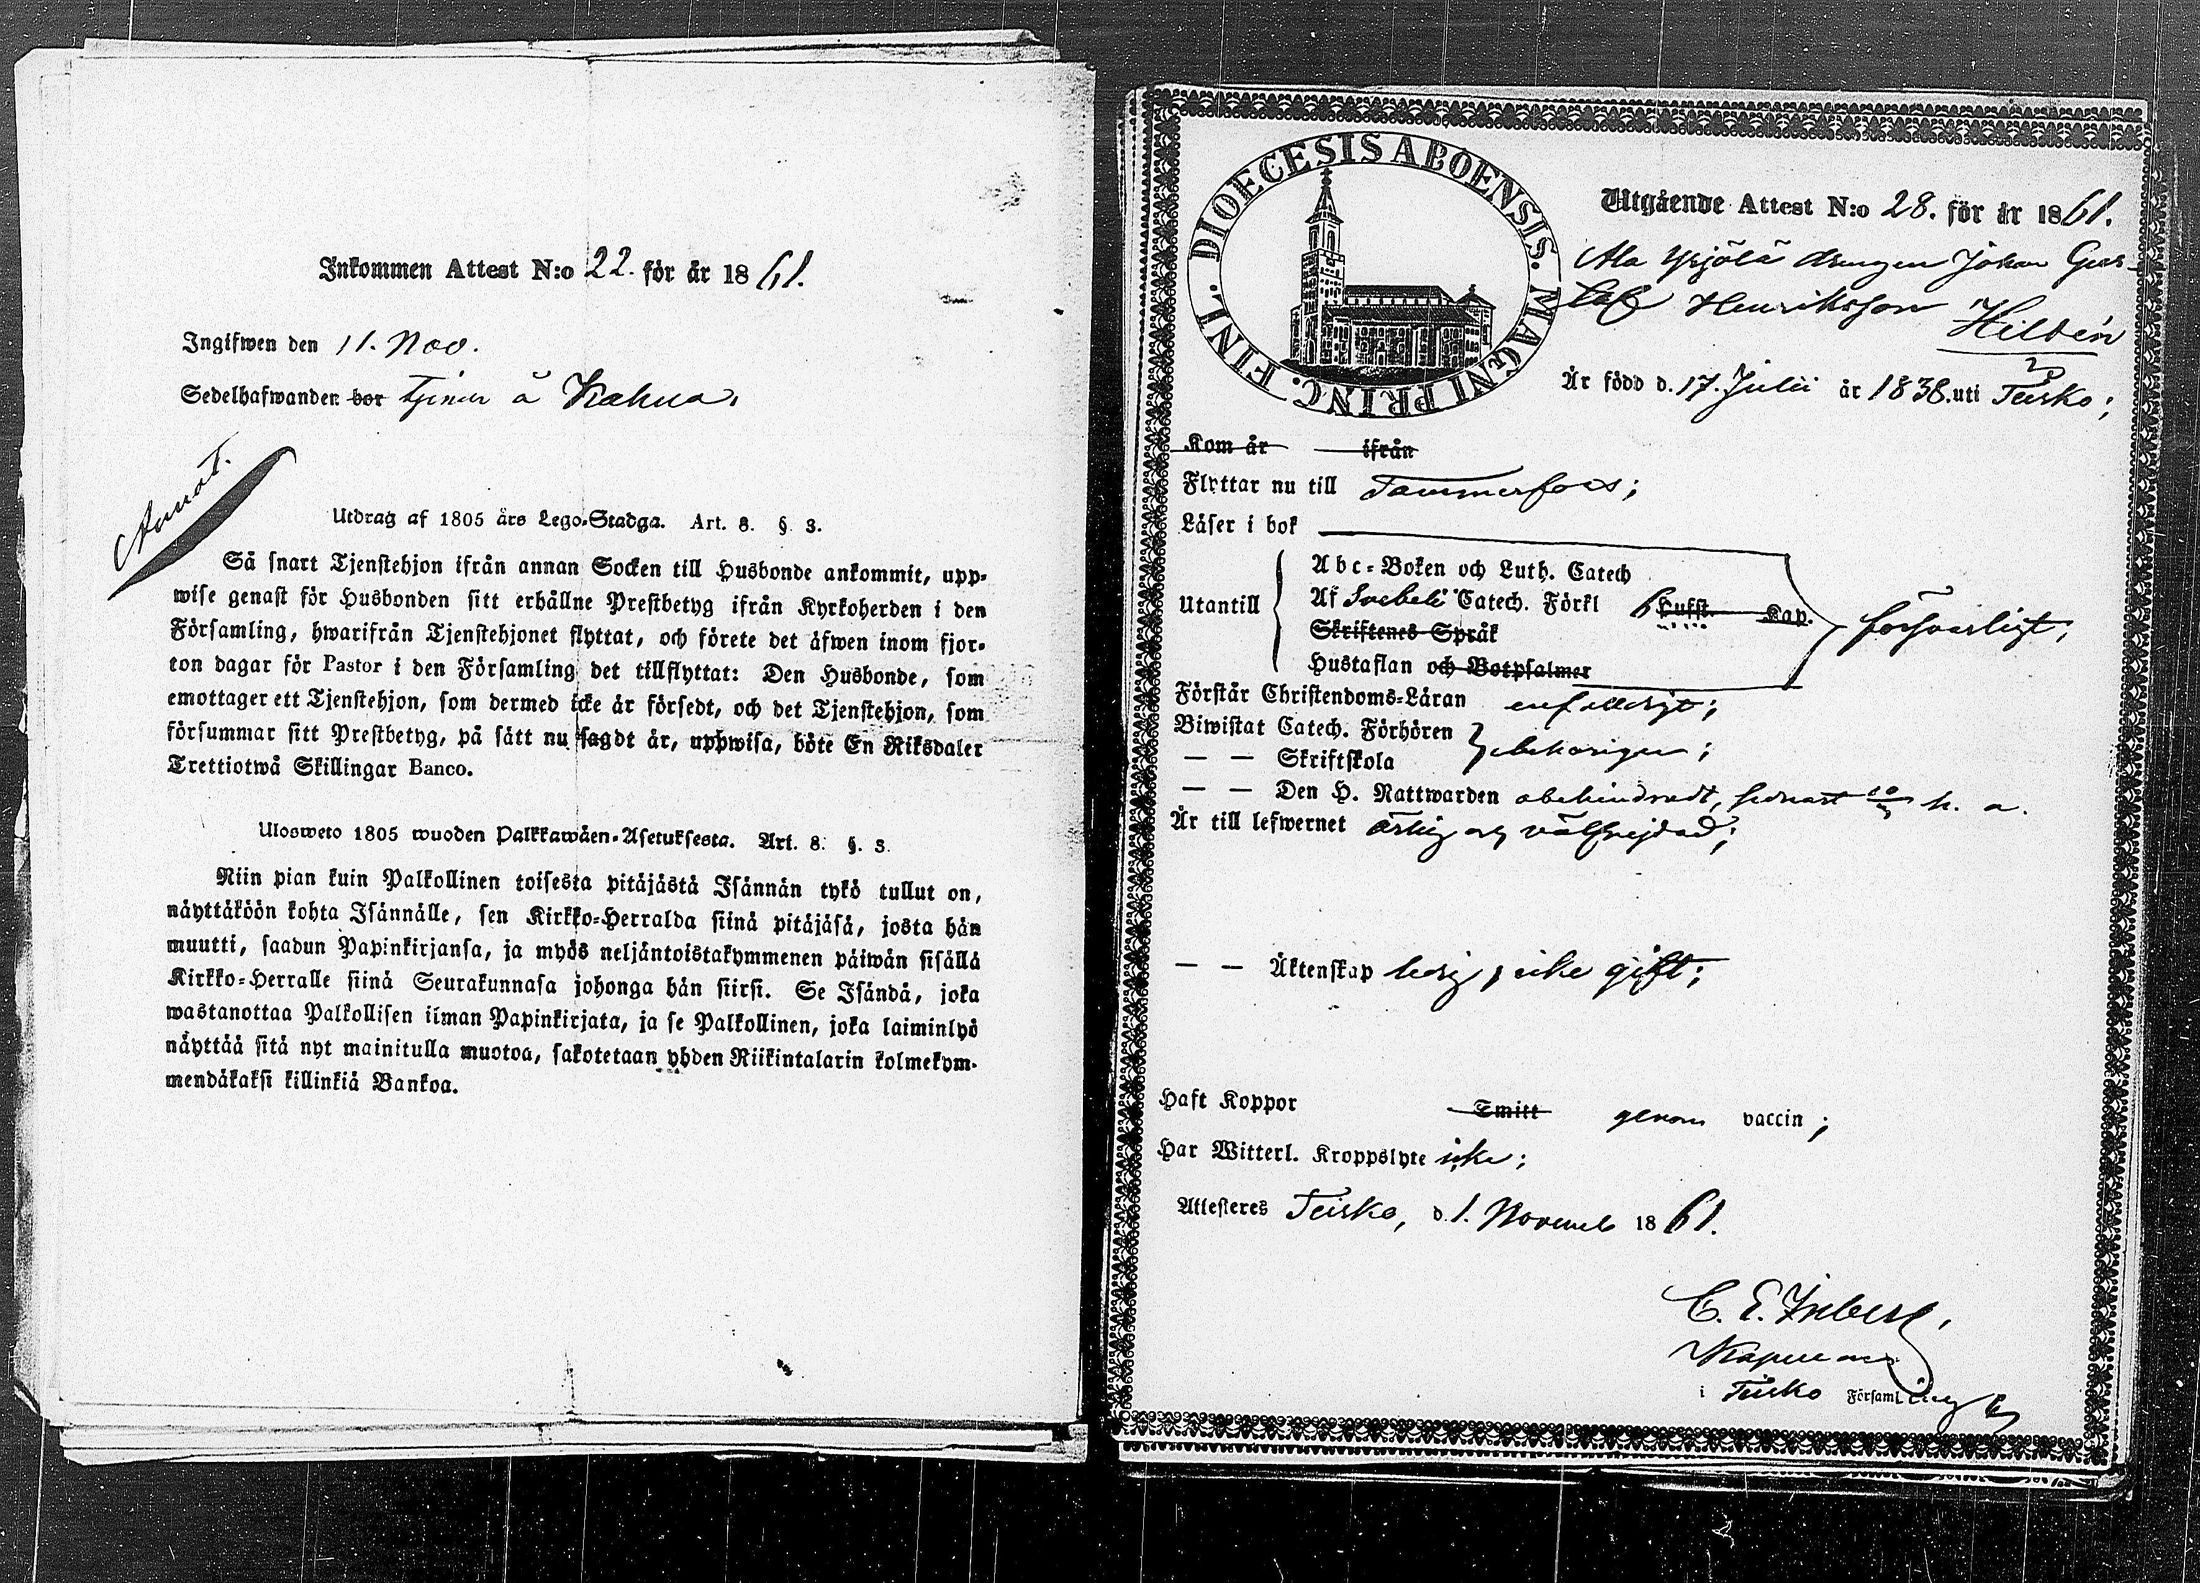 Inkommen Attest N:o 22. för år 1861.
Ingifwen den 11. Nov.
Sedelhafwanden bor tjenar å Kahua.
Annot.
Utdrag af 1805 års Lego-Stadga. Art. 8. § 3.
Så snart Tjenstehjon ifrån annan Socken till Husbonde ankommit, upp-
wise genast för Husbonden sitt erhållne Prestbetyg ifrån Kyrkoherden i den
Församling, hwarifrån Tjenstehjonet flyttat, och förete det äfwen inom fjor-
ton dagar för Pastor i den Församling det tillflyttat: Den Husbonde, som
emottager ett Tjenstehjon, som dermed icke är försedt, och det Tjenstehjon, som
försummar sitt Prestbetyg, på sätt nu sagdt är, uppwisa, böte En Riksdaler
Trettiotwå Skillingar Banco.
Ulosweto 1805 wuoden Palkkawäen-Asetuksesta. Art. 8. §. 3.
Niin pian kuin Palkollinen toisesta pitäjästä Isännän tykö tullut on,
näyttäköön kohta Isännälle, sen Kirkko-Herralda siinä pitäjäsä, josta hän
muutti, saadun Papinkirjansa, ja myös neljäntoistakymmenen päiwän sisällä
Kirkko-Herralle siinä Seurakunnasa johonga hän siirsi. Se Isändä, joka
wastanottaa Palkollisen ilman Papinkirjata, ja se Palkollinen, joka laiminlyö
näyttää sitä nyt mainitulla muotoa, sakotetaan yhden Riikintalarin kolmekym-
mendäkaksi killinkiä Bankoa.
DIOECESIS ABOENSIS. MAGNI PRINC. FINL.
Utgående Attest N:o 28. för år 1861.
Ala Yrjölä drengen Johan Gus-
taf Henriksson
Hildén
Är född d. 17. Julii år 1838. uti Teisko;
Kom år ifrån
Flyttar nu till Tammerfors;
Läser i bok
Utantill
Abc-Boken och Luth. Catech
Af Svebelii Catech. Förkl 6 Hufst. Kap.
Skriftenes Språk
Hustaflan och Botpsalmer
försvarligt;
Förstår Christendoms-Läran enfaldigt;
Biwistat Catech. Förhören
— — Skriftskola
behörigen;
— — Den H. Nattwarden obehindradt, senast h. a.
Är till lefwernet ärlig och välfrejdad;
— — Äktenskap ledig, icke gift;
Haft Koppor Smitt genom vaccin;
Har Witterl. Kroppslyte icke;
Attesteres Teisko, d. 1. Novemb 1861.
C. E.
Kapellan
i Teisko Församling